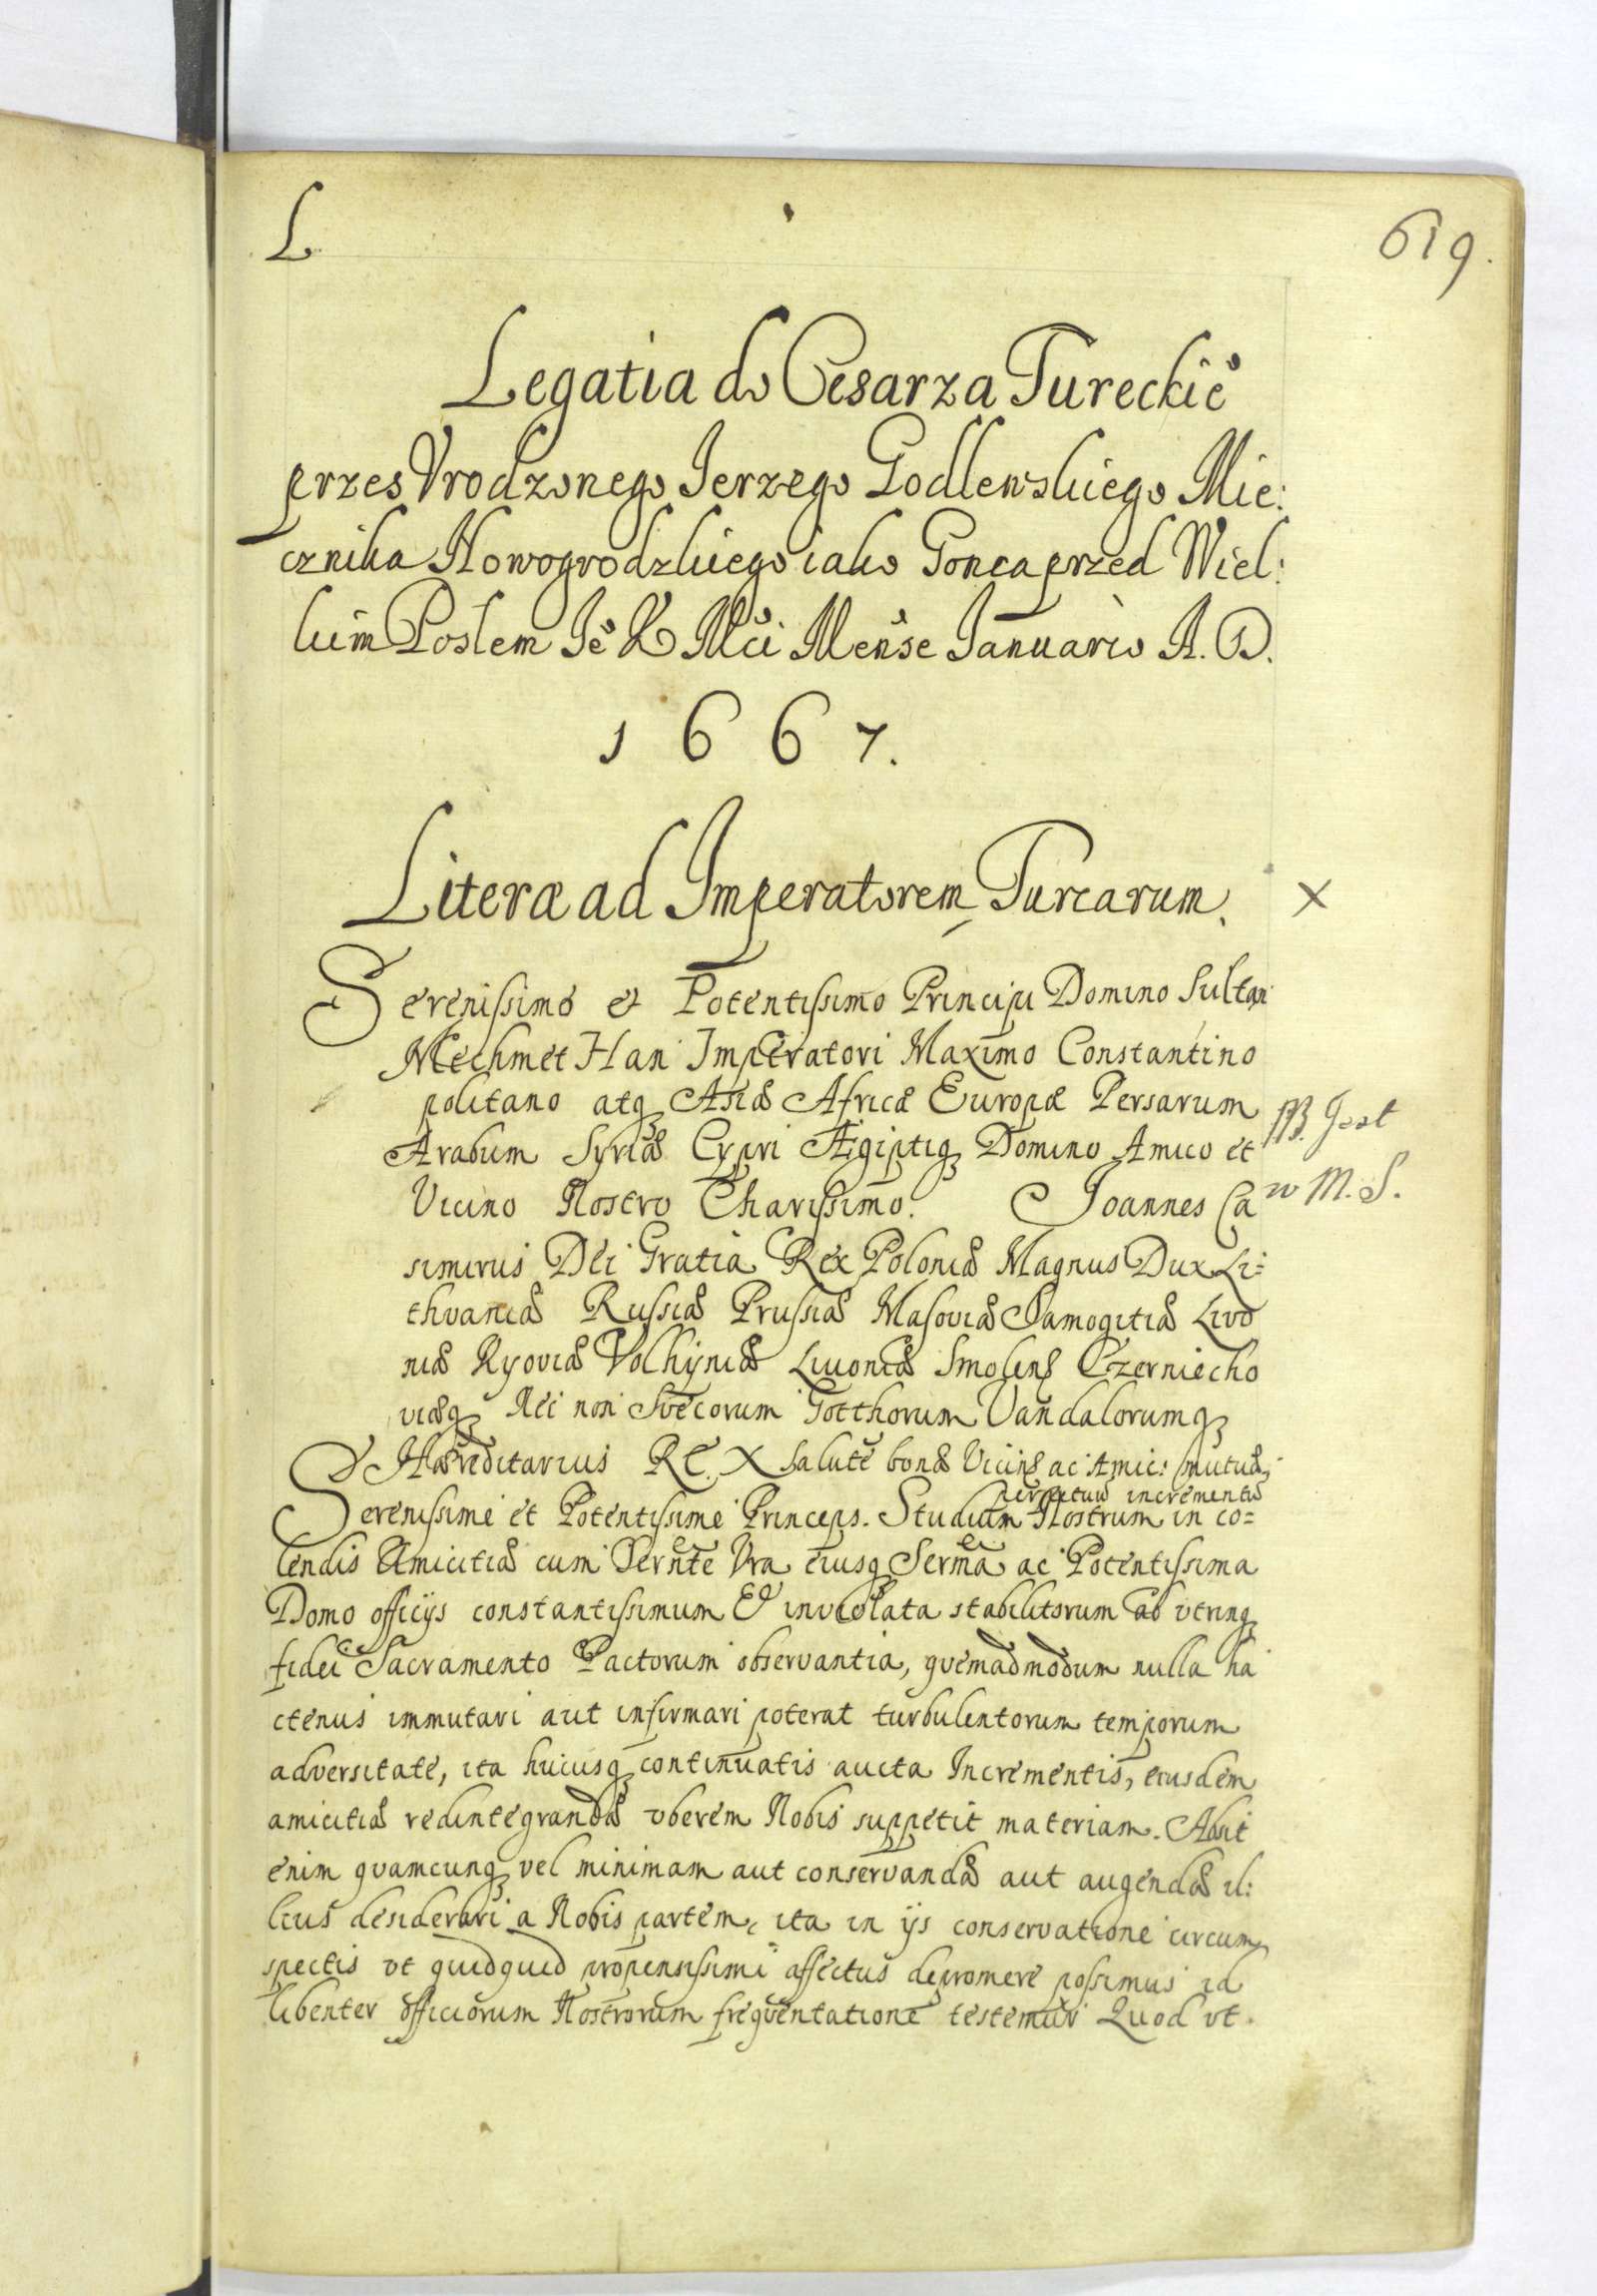 L
619.
Legatia do Cesarza Tureckie͛
przes Vrodzonego Jerzego Godlewskiego Mie:
cznika Nowogrodzkiego iako Gonca przed Wiel:
kim Posłem Je͛ K Mći Mense Januario A. D.
1667.
Literæ ad Imperatorem Turcarum. X
Serenissimo et Potentissimo Principi Domino Sultan
Mechmet Han Imperatori Maximo Constantino
politano atq Asiæ Africæ Europæ Persarum
Arabum Syriæ Cypri Ægiptiq Domino Amico et
Vicino Nostro Charissimo. Joannes Ca
simirus Dei Gratia Rex Poloniæ Magnus Dux Li:
thvaniæ Russiæ Prussiæ Masoviæ Samogitiæ Livo
niæ Kyoviæ Volhyniæ Livoniæ Smolens Czerniecho
viæq Nec non Svecorum Gotthorum Vandalorumq
NB. Jest
w M. S.
Hæreditarius REX salutē bonæ Vicinæ ac Amic: mutuæ
perpetuū incrementū
Serenissime et Potentissime Princeps. Studium Nostrum in co=
lendis Amicitiæ cum Sernte Vra eiusq Serma ac Potentissima
Domo officijs constantissimum et inviolata stabilitorum ab utrinq
fidei Sacramento Pactorum observantia, qvemadmodum nulla ha
ctenus immutari aut infirmari poterat turbulentorum temporum
adversitate, ita hucusq continuatis aucta Incrementis, eiusdem
amicitiæ redintegrandæ vberem Nobis suppetit materiam. Absit
enim qvamcunq vel minimam aut conservandæ aut augendæ il:
lius desiderari a Nobis partem, ita in ijs conservatione circum
spectis vt quidquid propensissimi affectus depromere possimus id
libenter officiorum Nostrorum freqventatione testemur Quod vt.